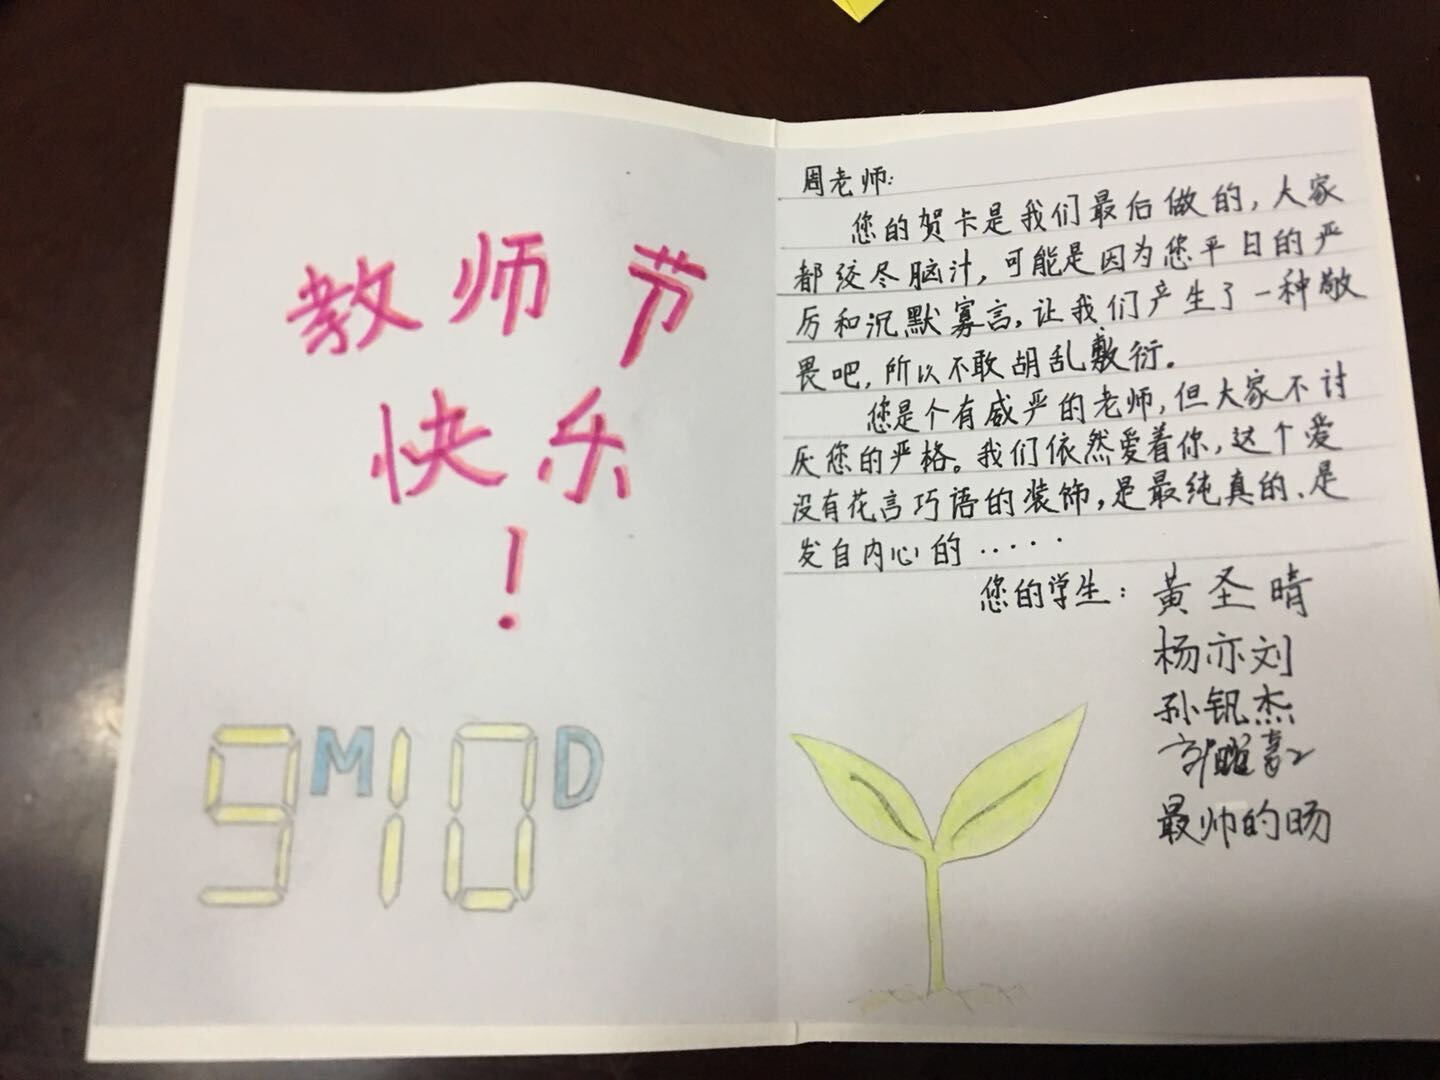 教师节
快乐
！
9M10D
周老师：
您的贺卡是我们最后做的，大家
都绞尽脑汁，可能是因为您平日的严
厉和沉默寡言，让我们产生了一种敬
畏吧，所以不敢胡乱敷衍。
您是个有威严的老师，但大家不讨
厌您的严格。我们依然爱着你，这个爱
没有花言巧语的装饰，是最纯真的、是
发自内心的·····
您的学生：黄圣晴
杨亦刘
孙钒杰
最帅的旸